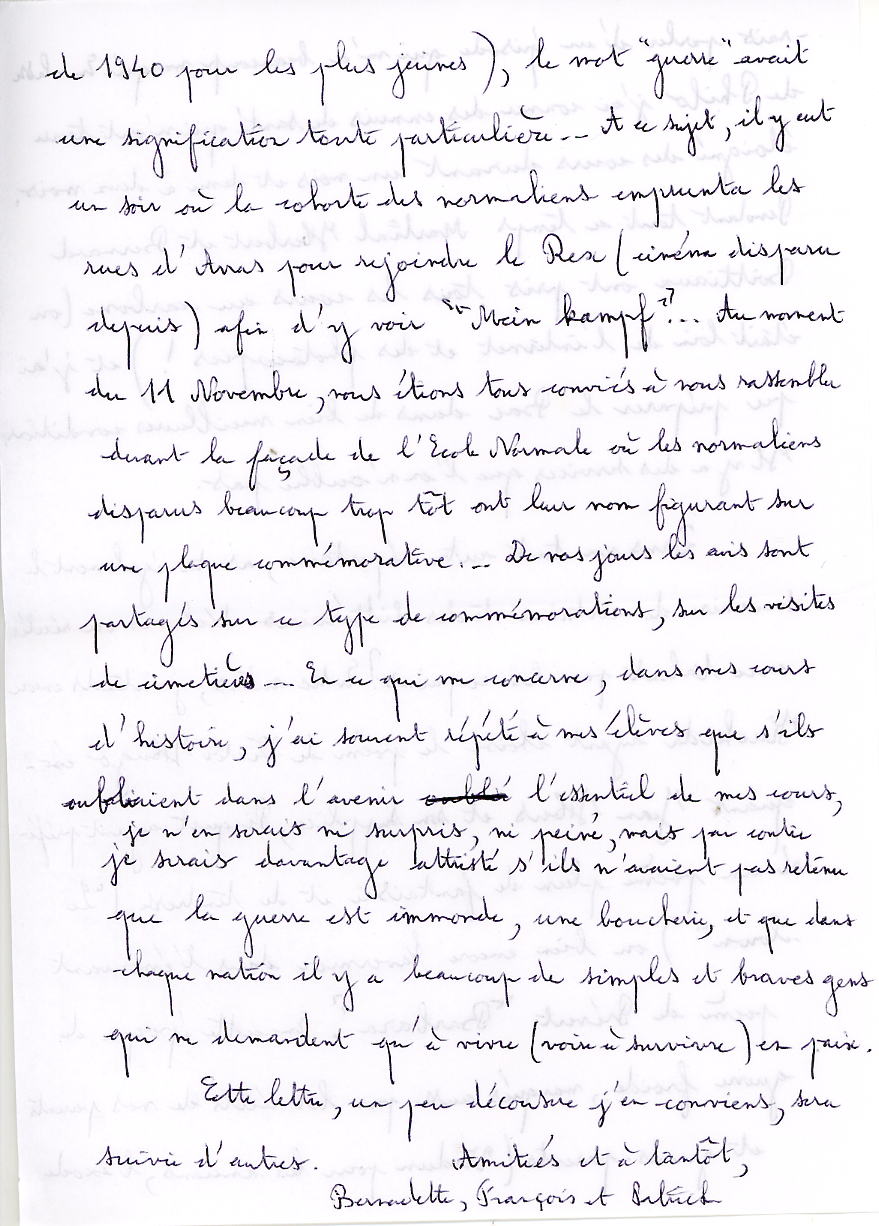 de 1940 pour les plus jeunes), le mot "guerre" avait
une signification toute particulière... A ce sujet, il y eut
un soir où la cohorte des normaliens emprunta les
rues d'Arras pour rejoindre le Rex (cinéma disparu
depuis) afin d'y voir "Mein kampf"... Au moment
du 11 Novembre, nous étions tous conviés à nous rassembler
devant la façade de l'Ecole Normale où les normaliens
disparus beaucoup trop tôt ont leur nom figurant sur
une plaque commémorative... De nos jours les avis sont
partagés sur ce type de commémorations, sur les visites
de cimetières... En ce qui me concerne, dans mes cours
d'histoire, j'ai souvent répété à mes élèves que s'ils
oubliaient dans l'avenir oublié l'essentiel de mes cours,
je n'en serais ni surpris, ni peiné, mais par contre
je serais davantage attristé s'ils n'avaient pas retenu
que la guerre est immonde, une boucherie, et que dans
chaque nation il y a beaucoup de simples et braves gens
qui ne demandent qu'à vivre (voire à survivre) en paix.
Cette lettre, un peu décousue j'en conviens, sera
suivie d'autres. Amitiés et à tantôt,
Bernadette, François et